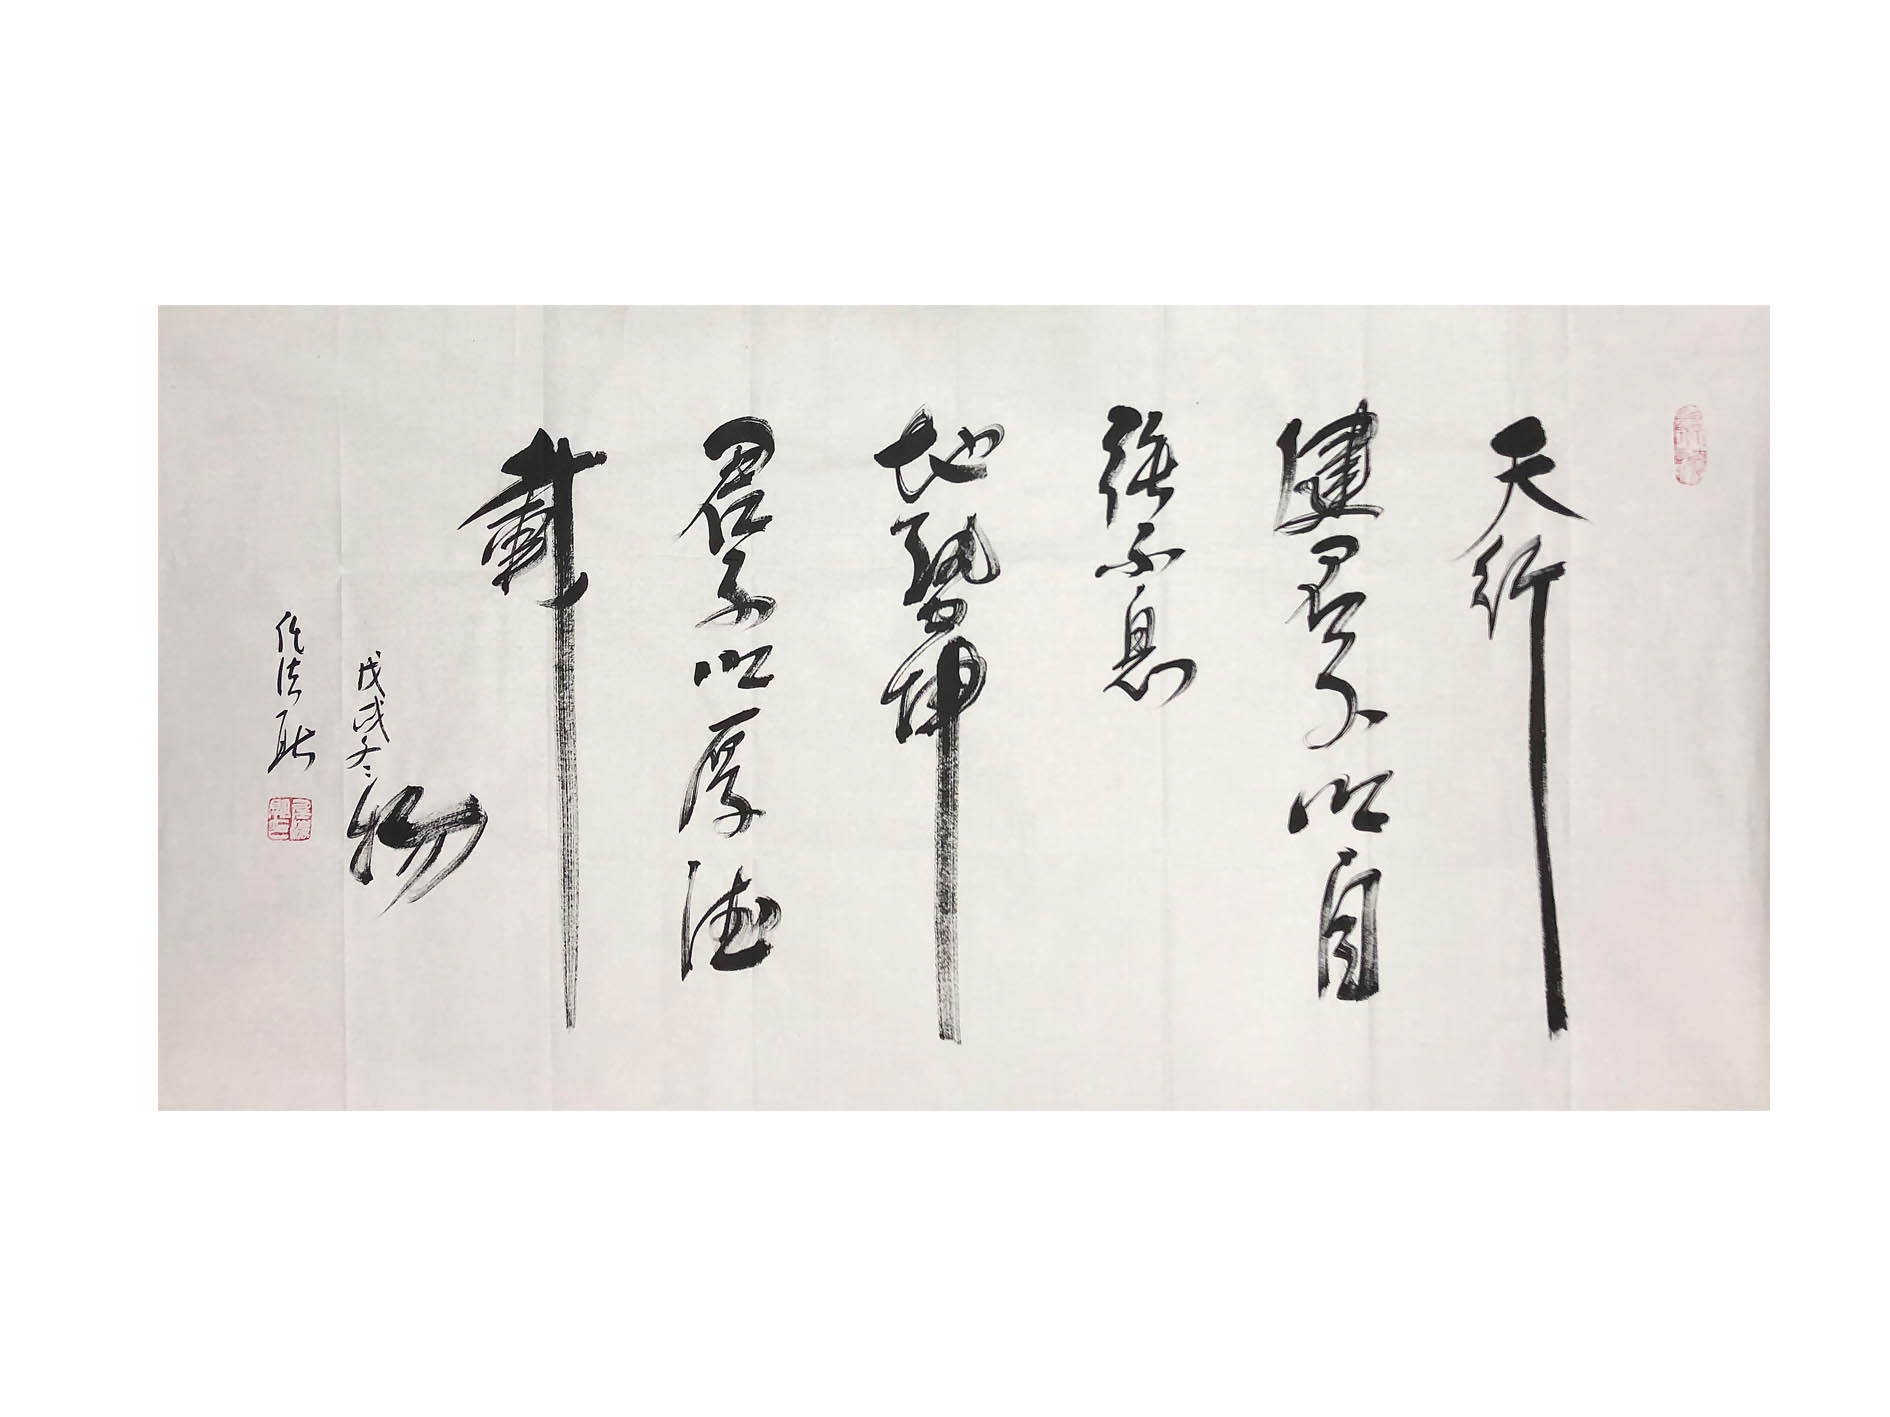 天行
健君子以自
强不息
地势坤
君子以厚德
載
物
戊戌冬